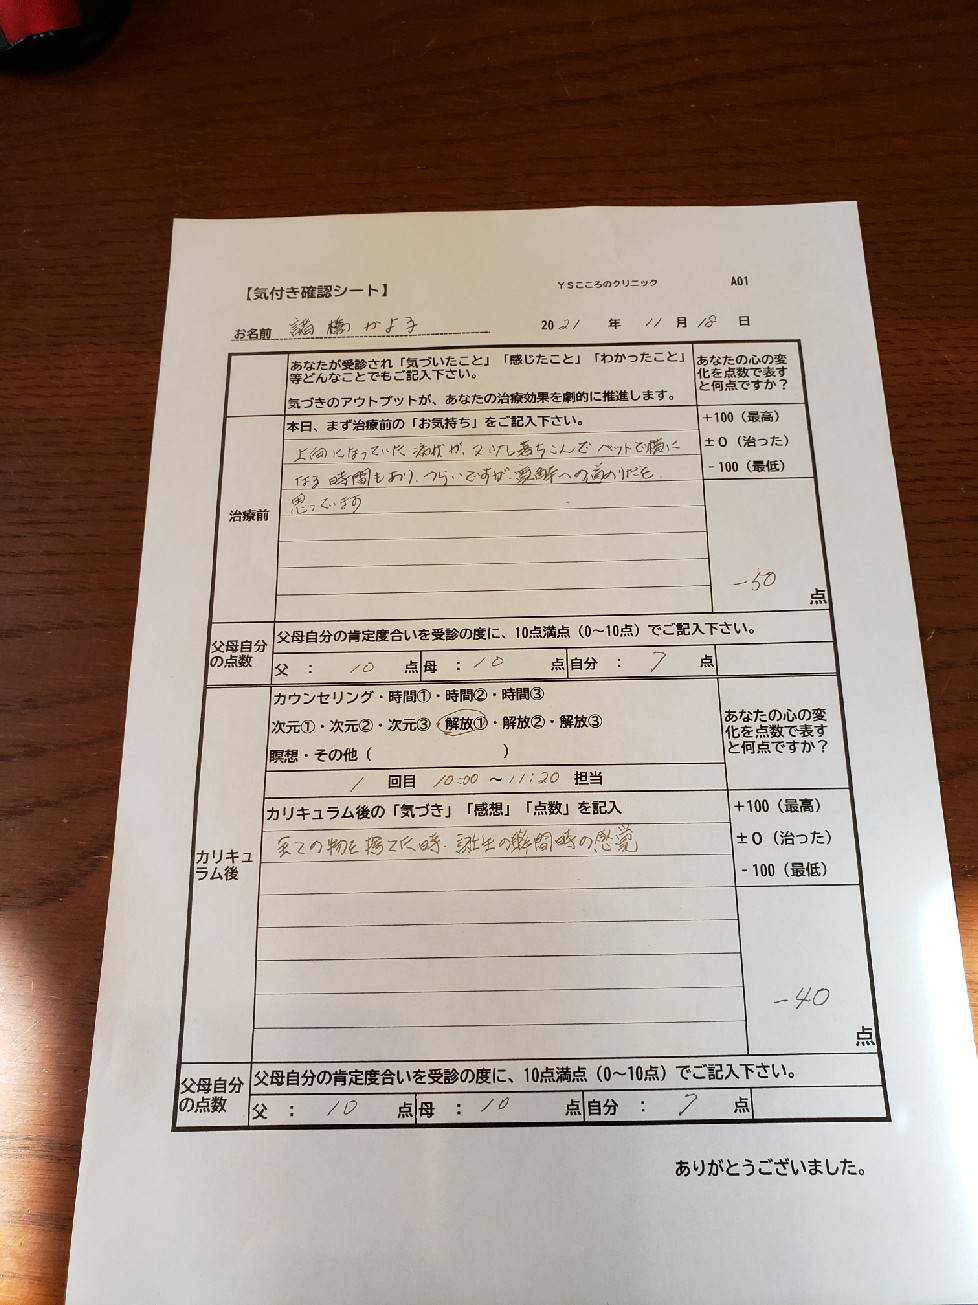 【気付き確認シート】
YSこころのクリニック
A01
お名前 諸橋かよ子
2021 年 11 月 18 日
あなたが受診され「気づいたこと」「感じたこと」「わかったこと」
等どんなことでもご記入下さい。
気づきのアウトプットが、あなたの治療効果を劇的に推進します。
あなたの心の変
化を点数で表す
と何点ですか？
治療前
本日、まず治療前の「お気持ち」をご記入下さい。
上向になっていた病状が、又少し落ちこんでベットで横に
なる時間もあり、つらいですが、寛解への道のりだと
思っています
+100（最高）
±０（治った）
-100（最低）
-50
点
父母自分
の点数
父母自分の肯定度合いを受診の度に、10点満点（0～10点）でご記入下さい。
父 ： 10 点 母 ： 10 点 自分 ： 7 点
カリキュ
ラム後
カウンセリング・時間①・時間②・時間③
次元①・次元②・次元③・解放①・解放②・解放③
瞑想・その他（ ）
1 回目 10:00 ～ 11:20 担当
あなたの心の変
化を点数で表す
と何点ですか？
カリキュラム後の「気づき」「感想」「点数」を記入
全ての物を捨てた時、誕生の瞬間時の感覚
+100（最高）
±０（治った）
-100（最低）
-40
点
父母自分
の点数
父母自分の肯定度合いを受診の度に、10点満点（0～10点）でご記入下さい。
父 ： 10 点 母 ： 10 点 自分 ： 7 点
ありがとうございました。